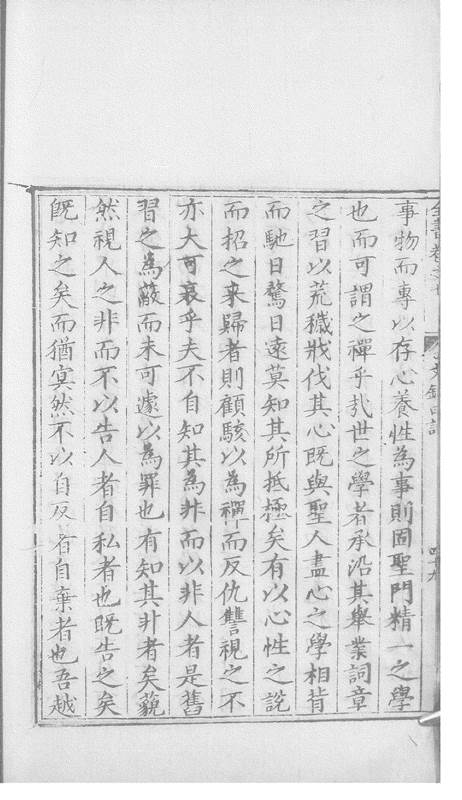 事物而專以存心養性為事則固聖門精一之學
也而可謂之禪乎㢤世之學者承沿其舉業詞章
之習以荒穢戕伐其心既與聖人盡心之學相背
而馳日騖日遠莫知其所抵極矣有以心性之說
而招之来歸者則顧駭以為禪而反仇讐視之不
亦大可哀乎夫不自知其為非而以非人者是舊
習之為蔽而未可遽以為罪也有知其非者矣藐
然視人之非而不以告人者自私者也既告之矣
既知之矣而猶冥然不以自反者自棄者也吾越
全書卷之七